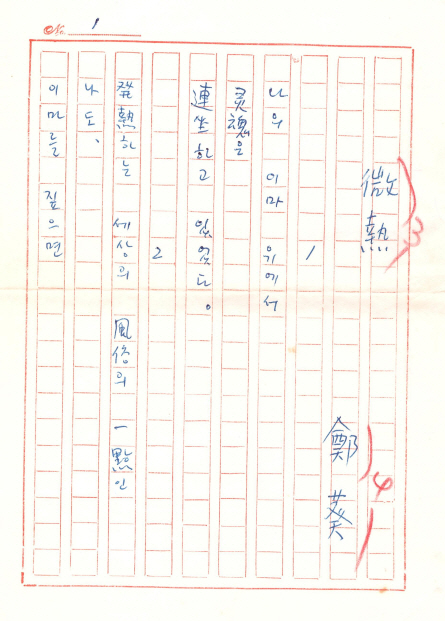 No. 1
微熱
3
鄭 葵
4
1
나의 이마 위에서
灵魂은
連坐하고 있었다。
2
發熱하는 세상의 風俗의 一點인
나도、
이마를 짚으면